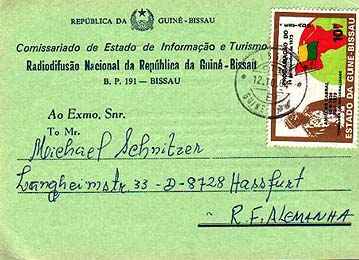 REPÚBLICA DA GUINÉ-BISSAU
Comissariado de Estado de Informação e Turismo
Radiodifusão Nacional da República da Guiné-Bissau
B. P. 191 — BISSAU
Ao Exmo. Snr.
To Mr.
Michael Schnitzer
Langheimstr. 33 - D-8728 Hassfurt
R. F. ALEMANHA
ESTADO DA GUINÉ BISSAU